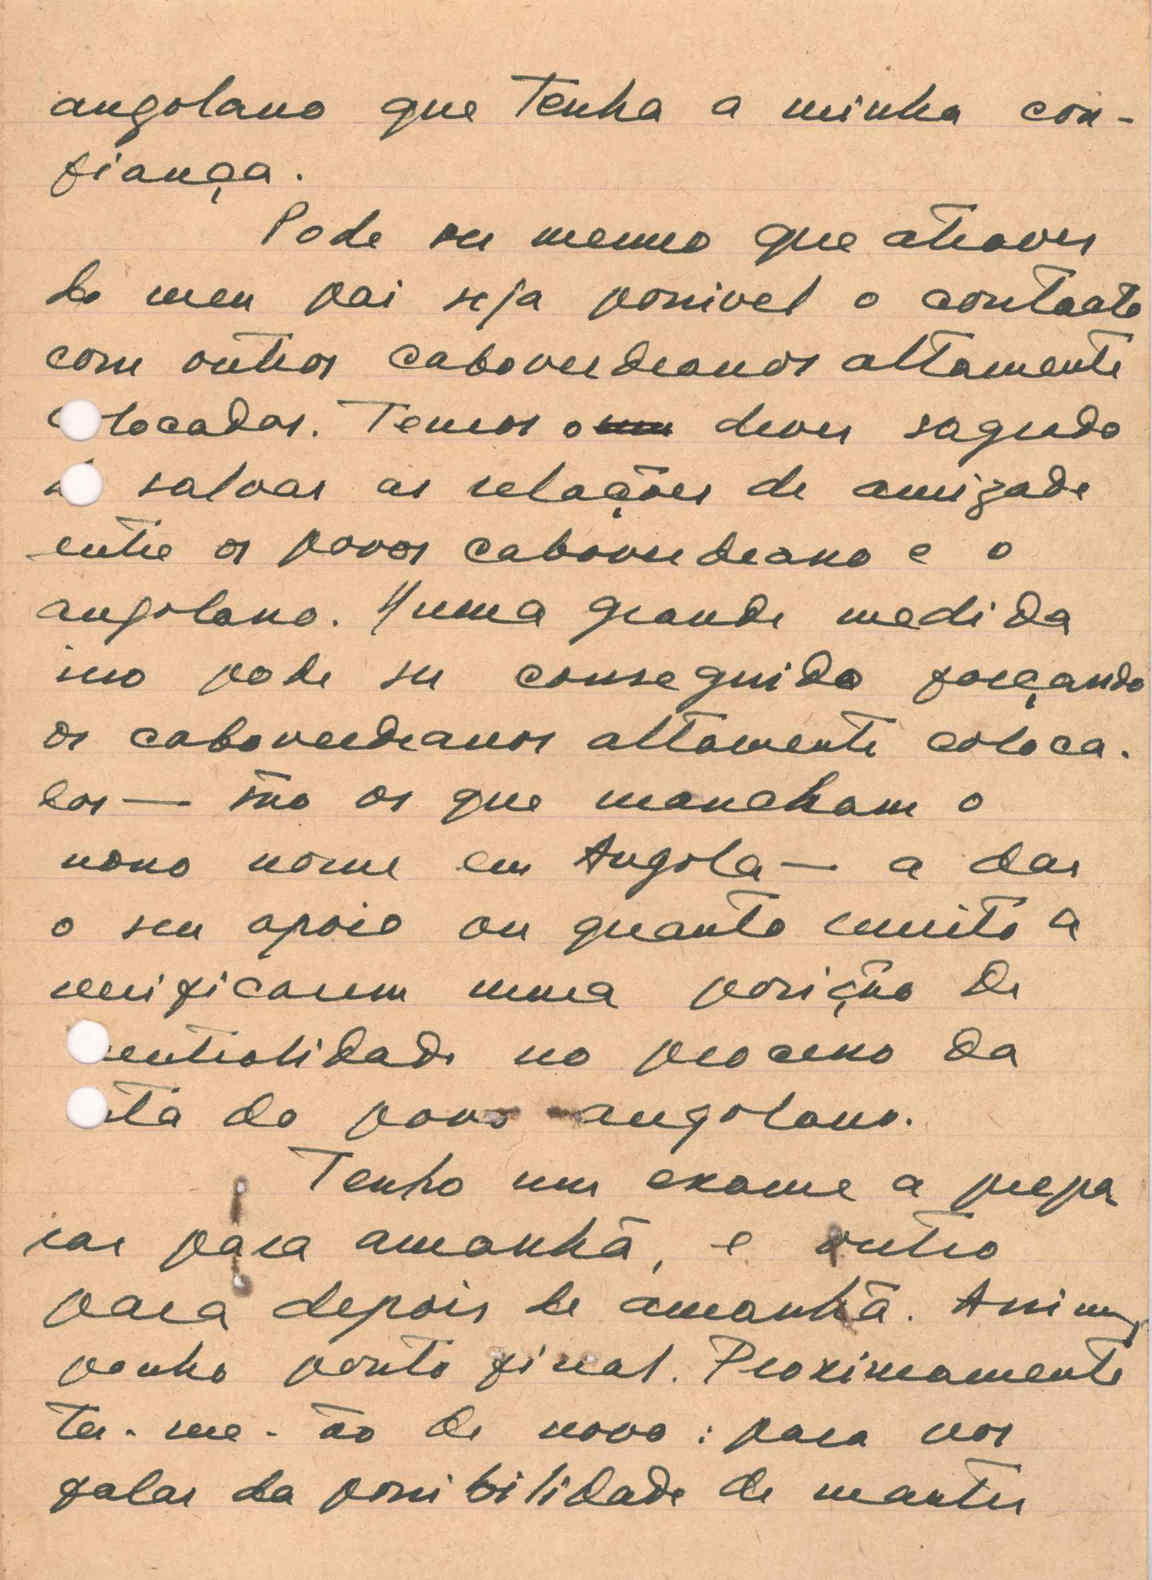 angolano que tenha a minha con-
fiança.
Pode ser mesmo que através
do meu pai seja possivel o contacto
com outros caboverdeanos altamente
colocados. Temos o dever sagrado
de salvar as relações de amizade
entre os povos caboverdeano e o
angolano. Numa grande medida
isso pode ser conseguido forçando
os caboverdeanos altamente coloca-
dos — são os que mancham o
nosso nome em Angola — a dar
o seu apoio ou quanto muito a
verificarem uma posição de
neutralidade no processo da
luta do povo angolano.
Tenho um exame a prepa
rar para amanhã, e outro
para depois de amanhã. Assim,
ponho ponto final. Proximamente
ter-me-ão de novo: para vos
falar da possibilidade de manter